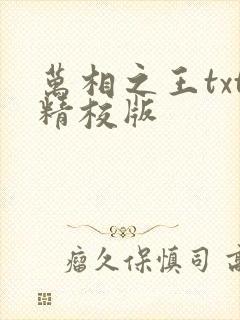 萬相之王txt
精校版
瘤久保慎司 高